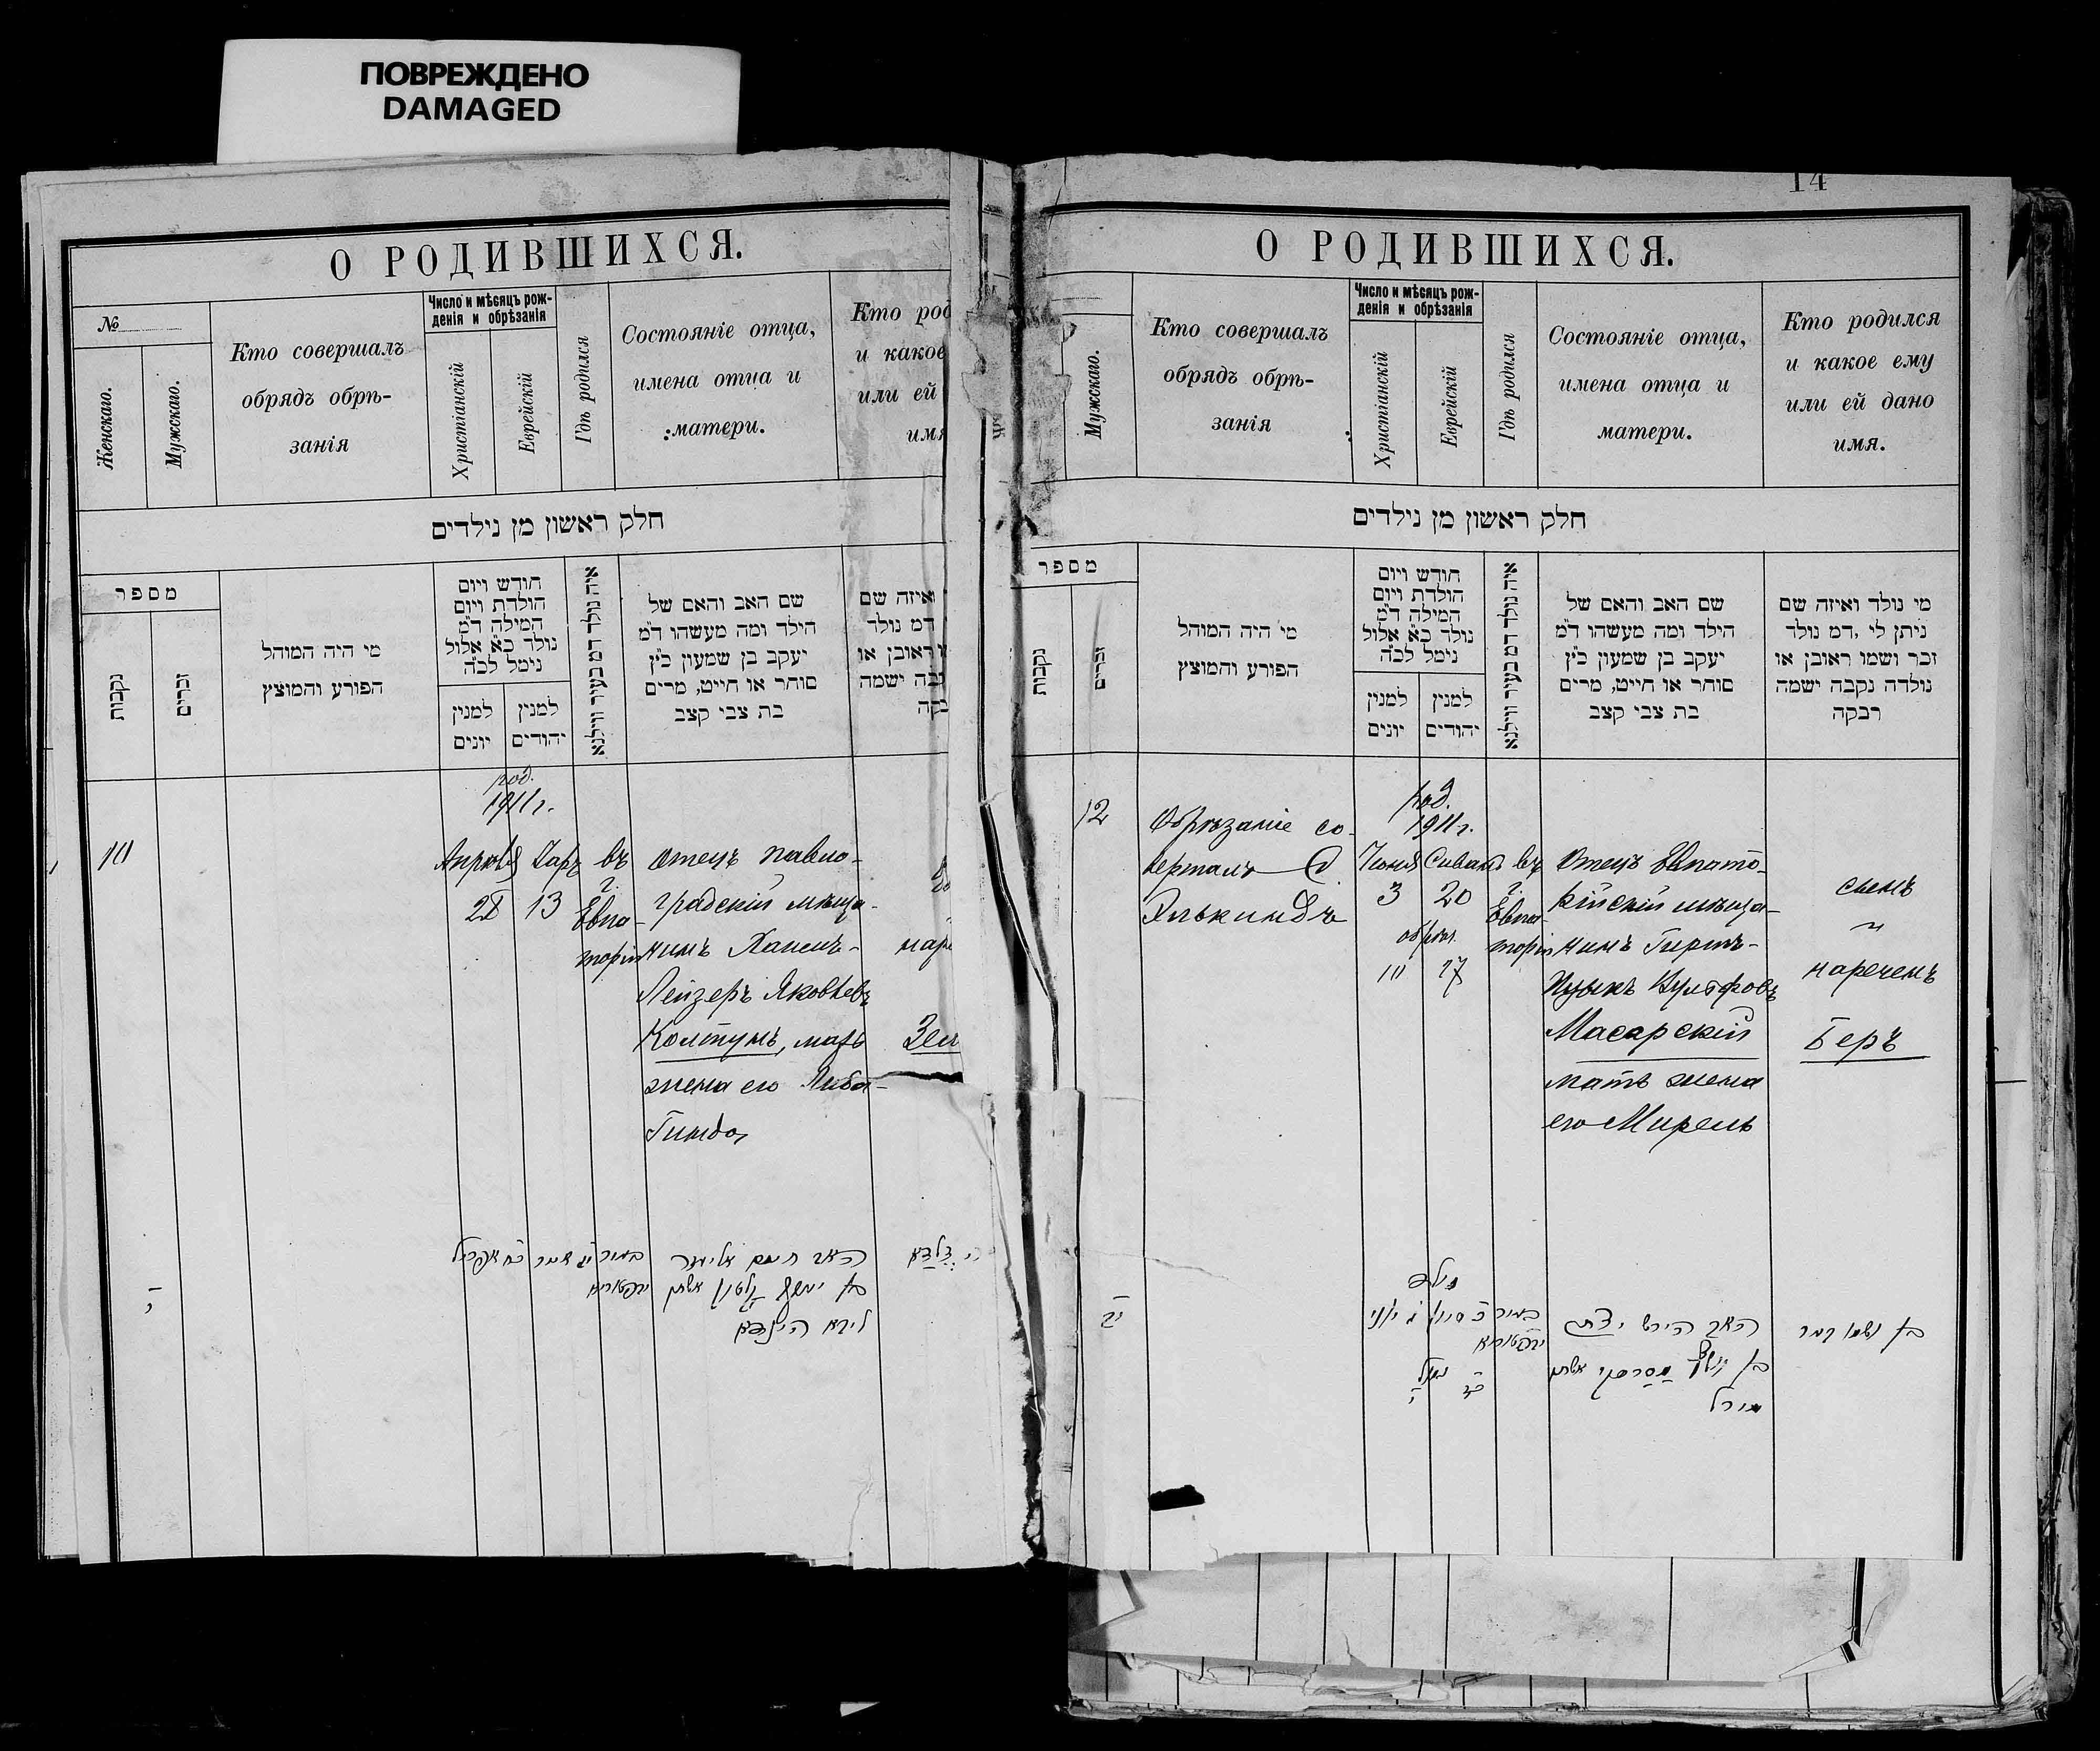 ПОВРЕЖДЕНО
DAMAGED
О РОДИВШИХСЯ.
№
Женскаго.
Мужскаго.
Кто совершалъ
обрядъ обрѣ-
занія
Число и мѣсяцъ рож-
денія и обрѣзанія
Христіанскій
Еврейскій
Гдѣ родился
Состояніе отца,
имена отца и
матери.
Кто род
и какое
или ей
имя
חלק ראשון מן נילדים
מספר
נקבות
זכרים
מי היה המוהל
הפורע והמוצץ
חודש ויום
הולדת ויום
המילה ד"מ
נולד כ"א אלול
נימל לכ"ה
למנין
יונים
למנין
יהודים
איה נולד דמ בעיר ווילנא
שם האב והאם של
הילד ומה מעשהו ד"מ
יעקב בן שמעון כ"ץ
סוחר או חייט, מרים
בת צבי קצב
ואיזה שם
דמ נולד
ראובן או
בה ישמה
בקה
10
род.
1911 г.
Апрѣля
28
Iаръ
13
въ
г.
Евпа-
торіи
Отецъ Павло-
градскій мѣща-
нинъ Хаимъ-
Лейзеръ Яковлевъ
Колтунъ, мать
жена его Либа-
Гинда
наре
Зел
י
כח אפריל
יג אייר
בעיר
יפטוריא
האב חיים אליעזר
בן יעקב קלטון אשתו
ליבא הינדא
זלדא
14
О РОДИВШИХСЯ.
Мужскаго.
Кто совершалъ
обрядъ обрѣ-
занія
Число и мѣсяцъ рож-
денія и обрѣзанія
Христіанскій
Еврейскій
Гдѣ родился
Состояніе отца,
имена отца и
матери.
Кто родился
и какое ему
или ей дано
имя.
חלק ראשון מן נילדים
מספר
נקבות
זכרים
מי היה המוהל
הפורע והמוצץ
חודש ויום
הולדת ויום
המילה ד"מ
נולד כ"א אלול
נימל לכ"ה
למנין
יונים
למנין
יהודים
איה נולד דמ בעיר ווילנא
שם האב והאם של
הילד ומה מעשהו ד"מ
יעקב בן שמעון כ"ץ
סוחר או חייט, מרים
בת צבי קצב
מי נולד ואיזה שם
ניתן לי, דמ נולד
זכר ושמו ראובן או
נולדה נקבה ישמה
רבקה
12
Обрѣзаніе со-
вершалъ
Элькиндъ
род.
1911 г.
Iюня
3
Сивана
20
обрѣз.
10 27
въ
г.
Евпа-
торіи
Отецъ Евпато-
рійскій мѣща-
нинъ Гиршъ-
Ицыкъ Вульфовъ
Масарскій
мать жена
его Мирель
сынъ
нареченъ
Беръ
יב
נולד
ג יוני
כ סיון
בעיר
יפטוריא
נימול
י
כז
האב הירש יצחק
בן וולף מסרסקי אשתו
מירל
בן ושמו בער